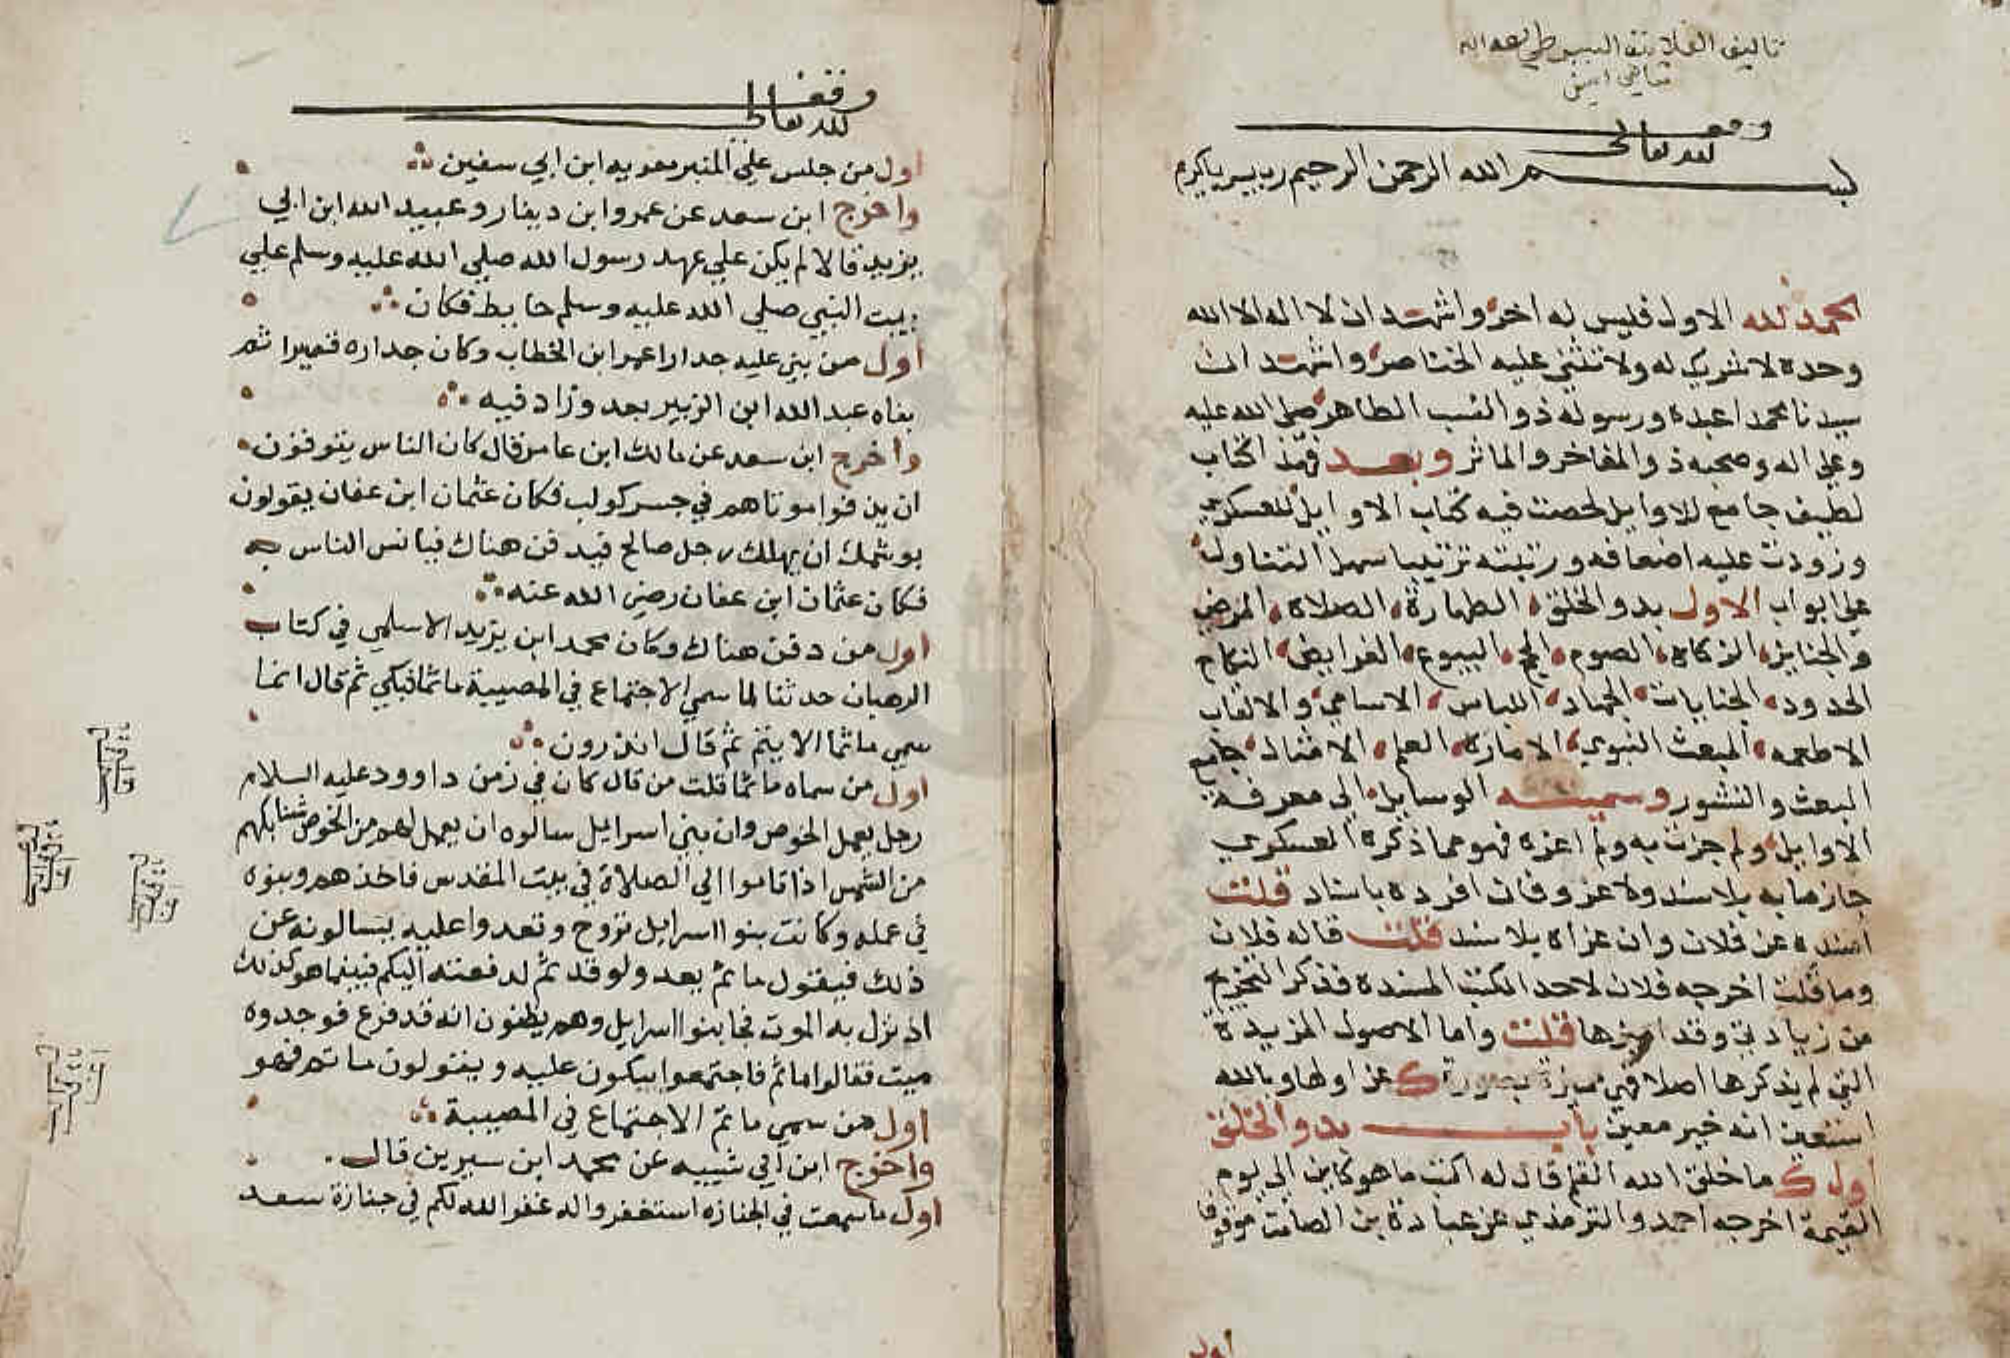 تاليف العلامة السيوطي رحمه الله
تعالى امين
وقف
لله تعالى
بسم الله الرحمن الرحيم رب يسر ياكريم
الحمد لله الاول فليس له اخر واشهد ان لا اله الا الله
وحده لا شريك له ولا تنثني عليه الخناصر واشهد ان
سيدنا محمدا عبده ورسوله ذو النسب الطاهر صلى الله عليه
وعلى اله وصحبه ذو المفاخر والماثر وبعد فهذا كتاب
لطيف جامع للاوايل لخصت فيه كتاب الاوايل للعسكري
وزودت عليه اضعافه ورتبته ترتيبا سهل التناول
على ابواب الاول بدو الخلق الطهارة الصلاة المرض
والجنايز الزكاه الصوم الحج البيوع الفرايض النكاح
الحدود الجنايات الجهاد اللباس الاسامي والالقاب
الاطعمه المبعث النبوي الاماره العلم الامثال جامع
البعث والنشور وسميته الوسايل الى معرفة
الاوايل ولم جزت به ولم اعزه فهو مما ذكره العسكري
جازما به بلا سند ولا عزو فان افرده باسناد قلت
اسنده عن فلان وان عزاه بلا سند قلت قاله فلان
وما قلت اخرجه فلان لاحد الكتب المسندة فذكر التخريج
من زيادتي وقد اميزها قلت واما الاصول المزيدة
التي لم يذكرها اصلا فهي مميزة بصورة ك عن اولها وبالله
استعين انه خير معين باب بدو الخلق
اول ك ما خلق الله القلم قال له اكتب ما هو كاين الى يوم
القيمة اخرجه احمد والترمذي عن عبادة بن الصامت موفوفا
اول
وقف
لله تعالى
اول من جلس علي المنبر معويه ابن ابي سفين
واخرج ابن سعد عن عمرو ابن دينار وعبيد الله ابن ابي
يزيد قالا لم يكن علي عهد رسول الله صلي الله عليه وسلم علي
بيت النبي صلي الله عليه وسلم حايط فكان
اول من بني عليه جدارا عمر ابن الخطاب وكان جداره قصيرا ثم
بناه عبد الله ابن الزبير بعد وزاد فيه
واخرج ابن سعد عن مالك ابن عامر قال كان الناس يتوقون
ان يدفنوا موتاهم في جسر كولب فكان عثمان ابن عفان يقولون
بوشمك ان يهلك رجل صالح فيدفن هناك فيانس الناس به
فكان عثمان ابن عفان رضي الله عنه
اول من دفن هناك وكان محمد ابن يزيد الاسلمي في كتاب
الرهبان حدثنا لما سمي الاجتماع في المصيبة ماتما فبكي ثم قال انما
سمي ماتما الا يتم ثم قال اتدرون
اول من سماه ماتما قلت من قال كان في زمن داوود عليه السلام
رجل يعمل الخوص وان بني اسرايل سالوه ان يعمل لهم من الخوص شيا يكنهم
من الشمس اذا قاموا الي الصلاة في بيت المقدس فاخذهم وبنوه
في عمله وكانت بنو ااسرايل تروح وتغدوا عليه يسالونه عن
ذلك فيقول ما تم بعد ولو قد تم لدفعته اليكم فبينما هو كذلك
اذ نزل به الموت فجا بنوا اسرايل وهم يظنون انه قد فرغ فوجدوه
ميت فقالوا ما تم فاجتمعوا يبكون عليه ويقولون ما تم فهو
اول من سمي ماتم الاجتماع في المصيبة
واخرج ابن ابي شيبه عن محمد ابن سيرين قال
اول ما سمعت في الجنازه استغفروا له غفر الله لكم في جنازة سعد